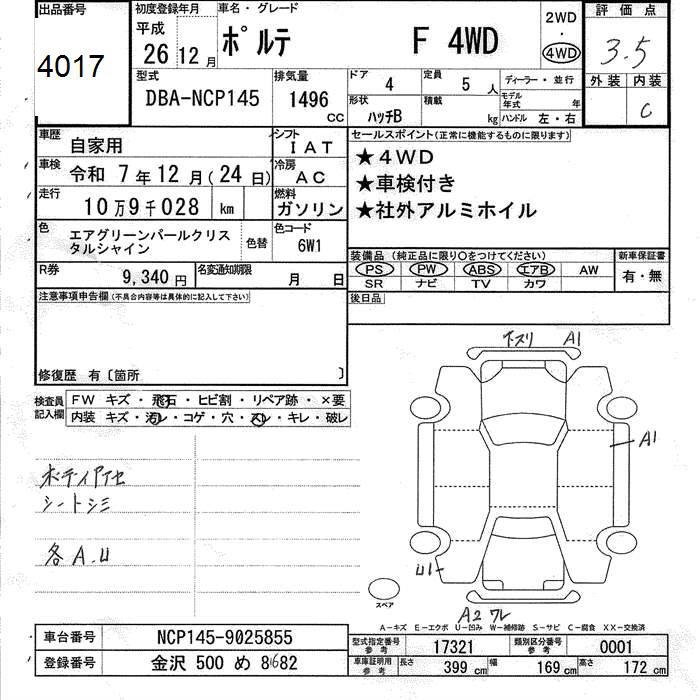 出品番号
4017
初度登録年月
平成
26年12月
車名・グレード
ポルテ F 4WD
2WD
・
4WD
評価点
3.5
外装 内装
C
型式
DBA-NCP145
排気量
1496
CC
ドア
4
定員
5人
形状
ハッチB
積載
kg
ディーラー・並行
モデル年式 年
ハンドル 左・右
車歴
自家用
シフト
IAT
車検
令和 7年12月(24日)
冷房
AC
走行
10万9千028 km
燃料
ガソリン
色
エアグリーンパールクリス
タルシャイン
色替
色コード
6W1
R券
9,340円
名変通知期限
月 日
セールスポイント(正常に機能するものに限ります)
★4WD
★車検付き
★社外アルミホイル
装備品(純正品に限り○をつけてください)
PS PW ABS エアB AW
SR ナビ TV カワ
新車保証書
有・無
後日品
注意事項申告欄(不具合内容等は具体的に記入して下さい)
修復歴 有〔箇所 〕
検査員
記入欄
FW キズ・飛石・ヒビ割・リペア跡・×要
内装 キズ・汚レ・コゲ・穴・スレ・キレ・破レ
シートシミ
各A.U
下スリ A1
A1
U1
A2 ワレ
スペア
A-キズ E-エクボ U-凹み W-補修跡 S-サビ C-腐食 XX-交換済
車台番号
NCP145-9025855
登録番号
金沢 500 め 8682
型式指定番号
参考
17321
類別区分番号
参考
0001
車庫証明用
参考
長さ
399 cm
幅
169 cm
高さ
172 cm